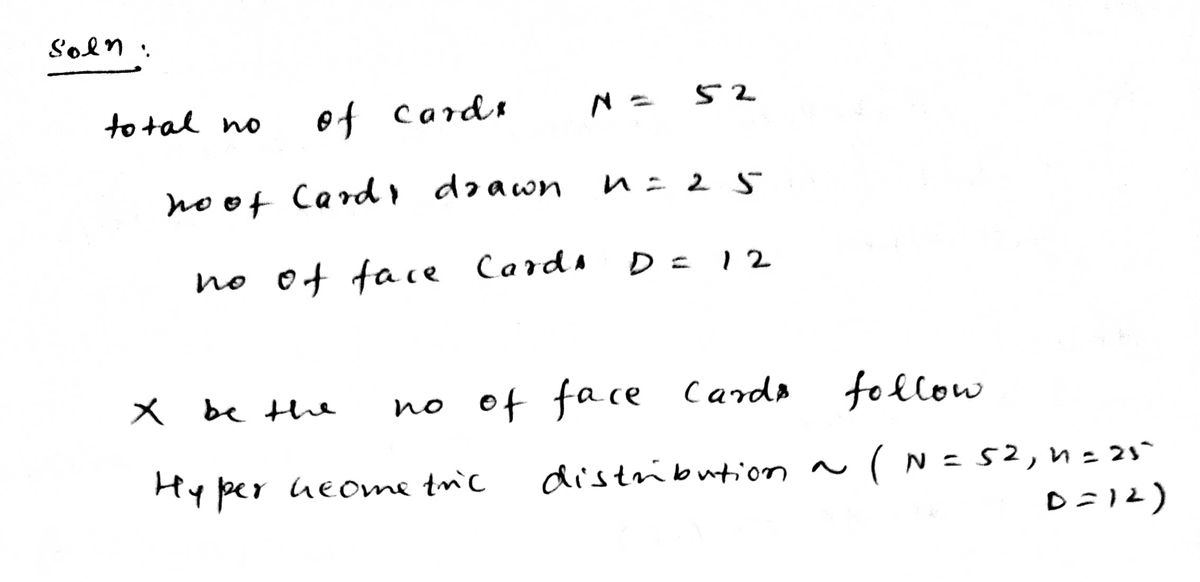 Soln :
total no of cards N = 52
no of Cards drawn n = 25
no of face Cards D = 12
X be the no of face Cards follow
Hyper Geometric distribution ~ ( N = 52, n = 25
D = 12 )